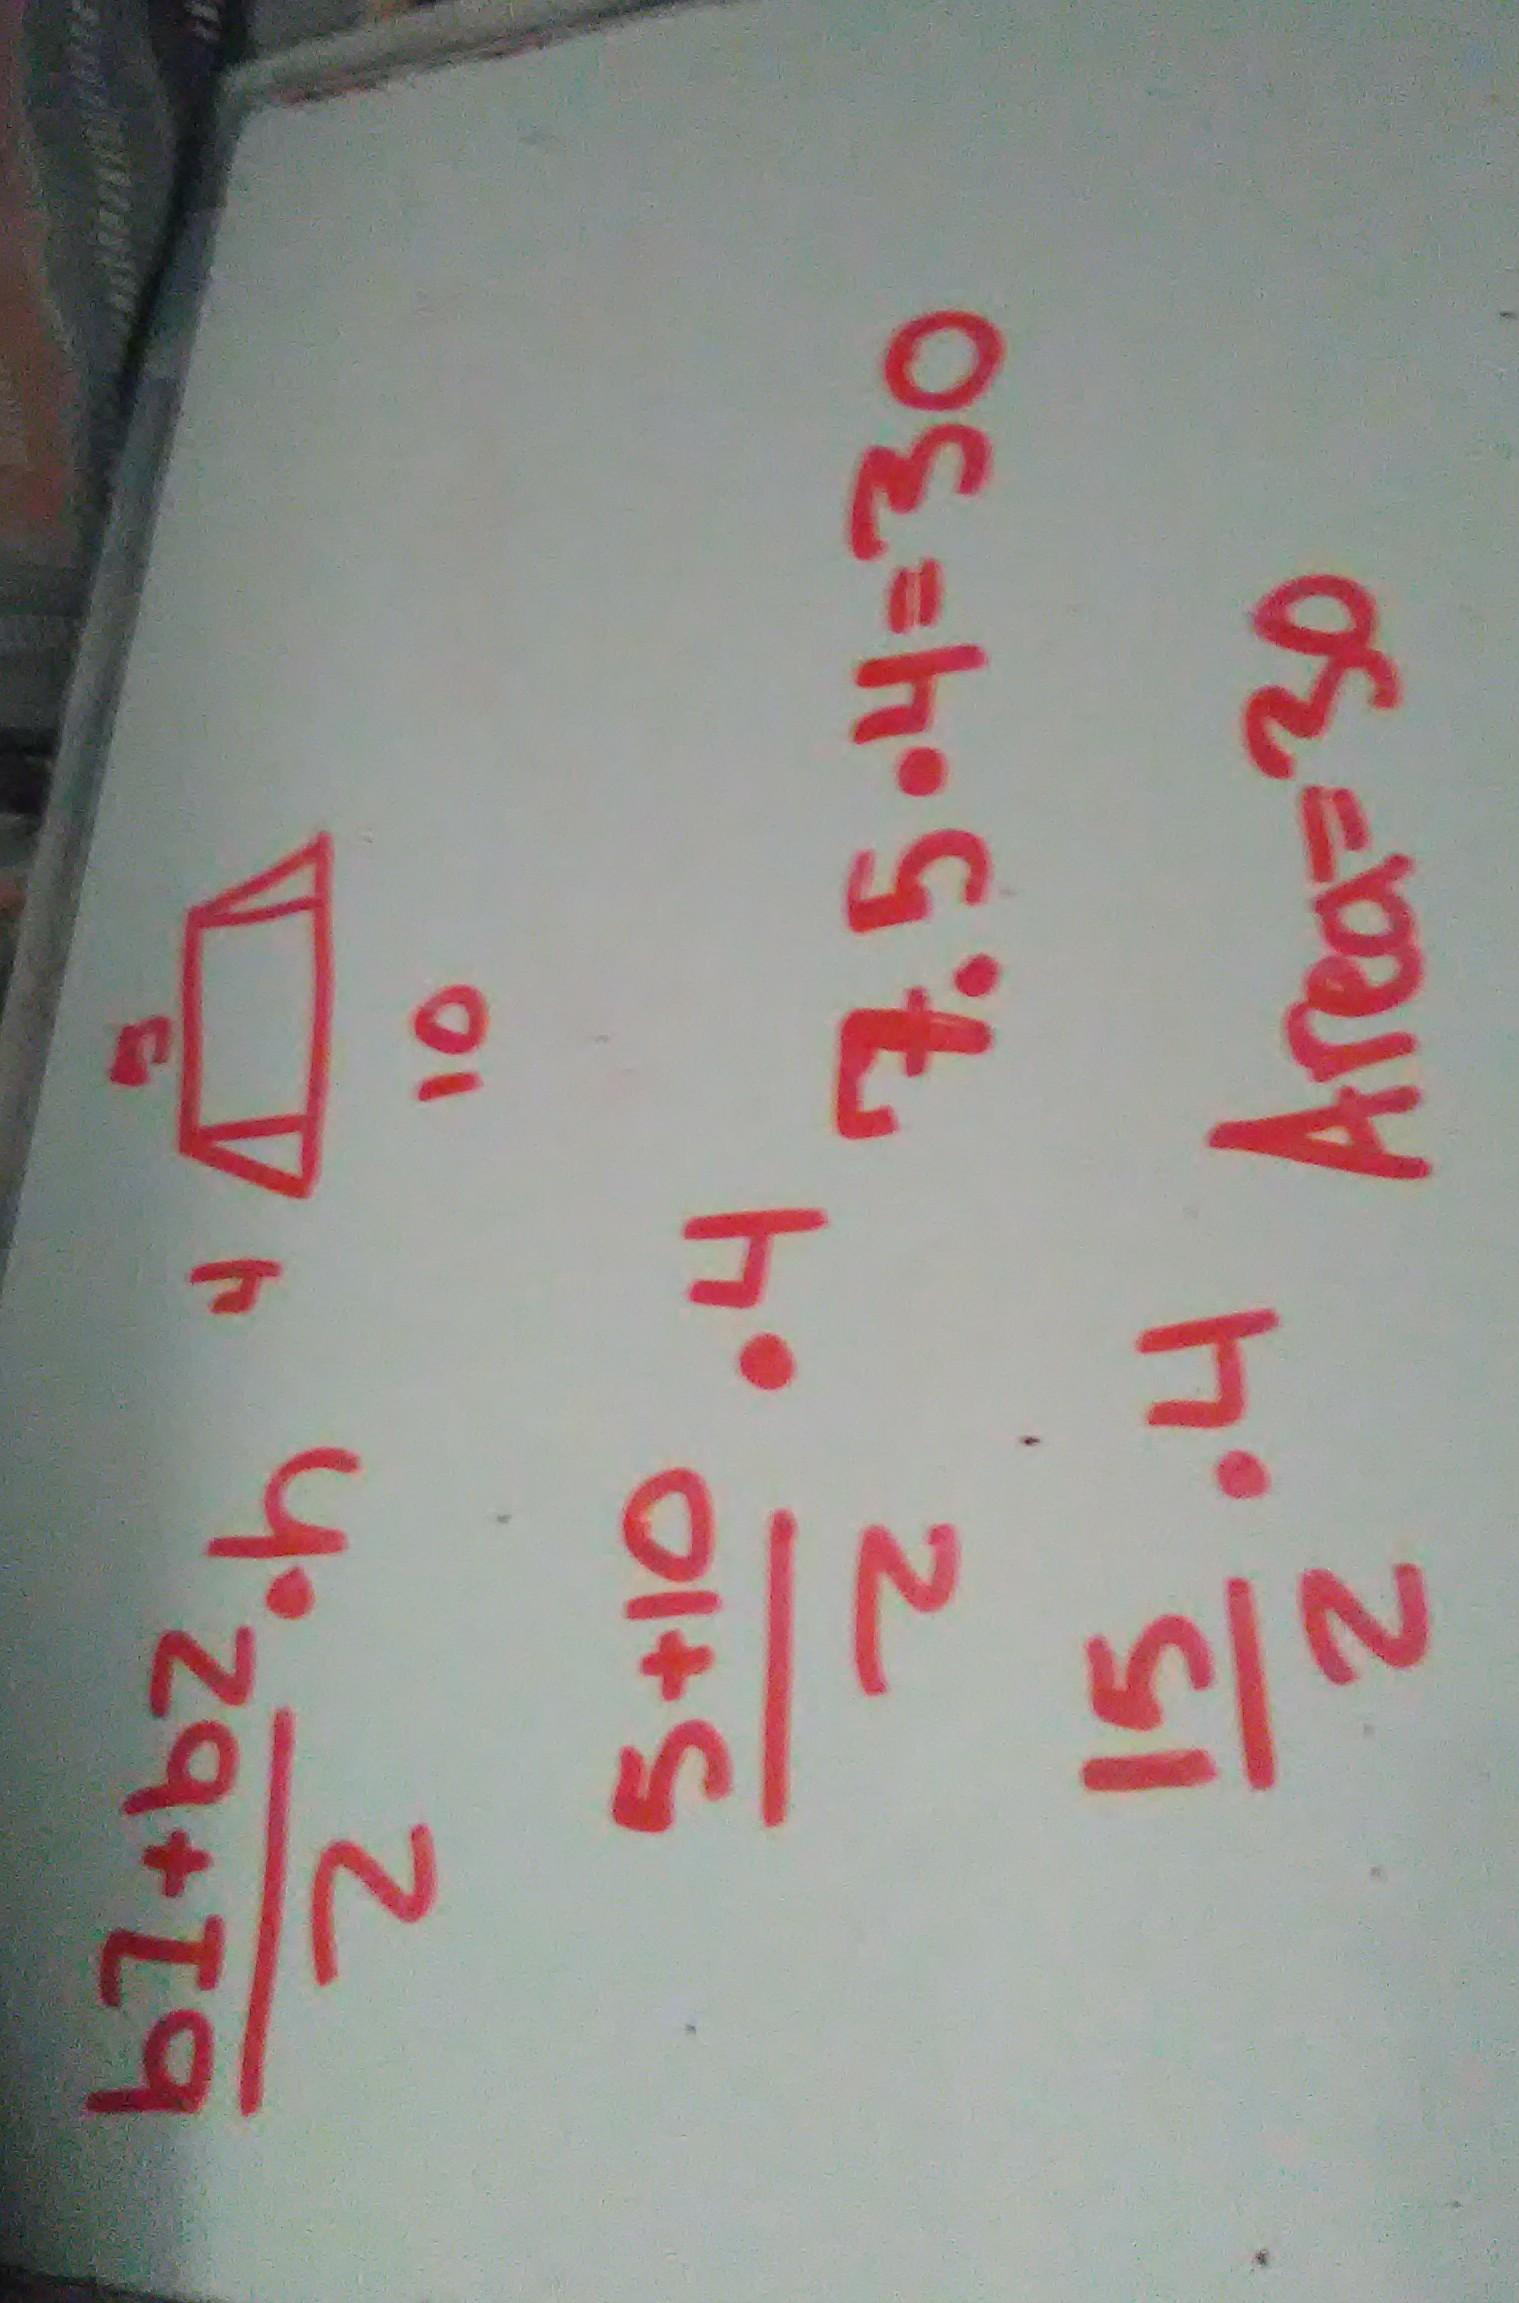 b1+b2
2
.h
4
5
10
5+10
2
.4
7.5.4=30
15
2
.4
Area=30